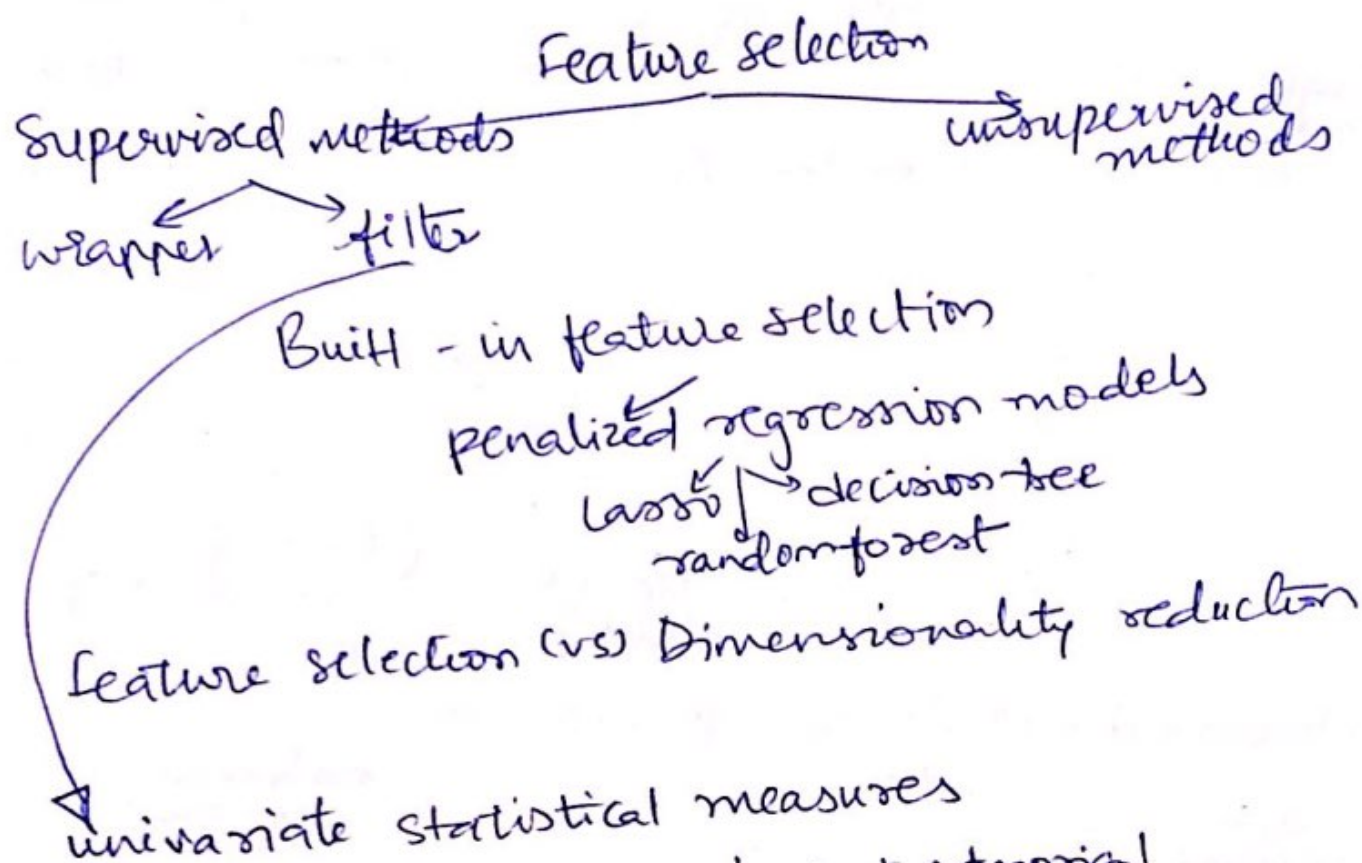 Feature selection
Supervised methods
unsupervised methods
wrapper filter
Built - in feature selection
penalized regression models
lasso decision tree
random forest
Feature selection (vs) Dimensionality reduction
univariate statistical measures